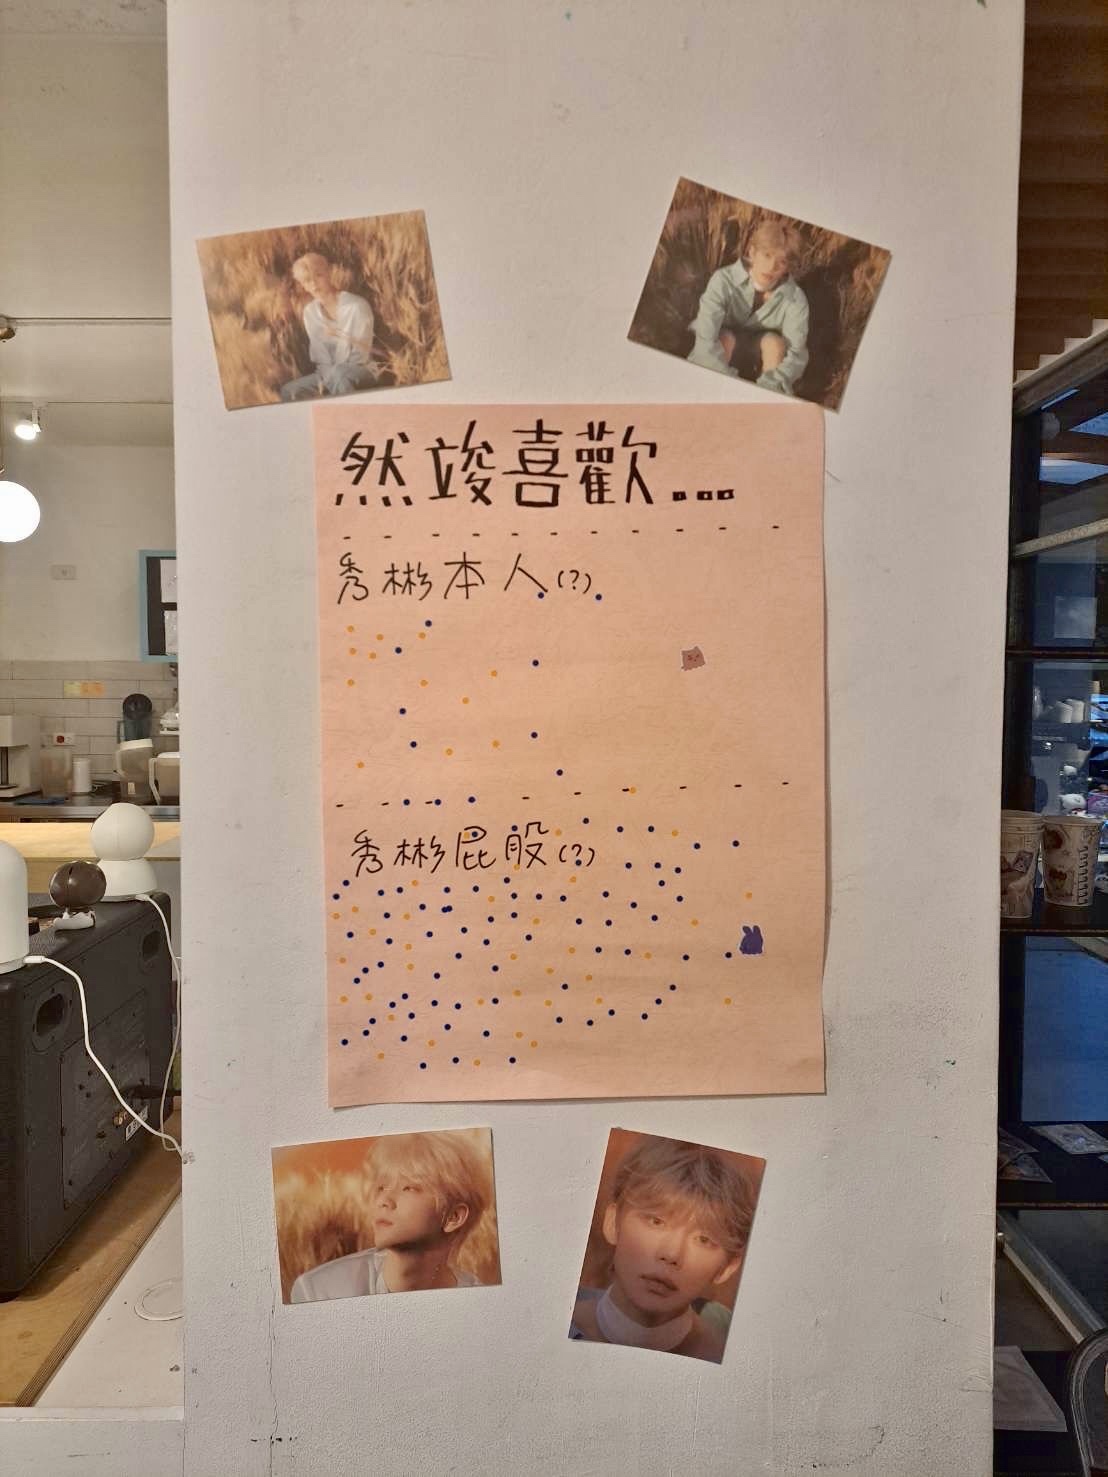 然竣喜歡...
秀彬本人(?)
秀彬屁股(?)